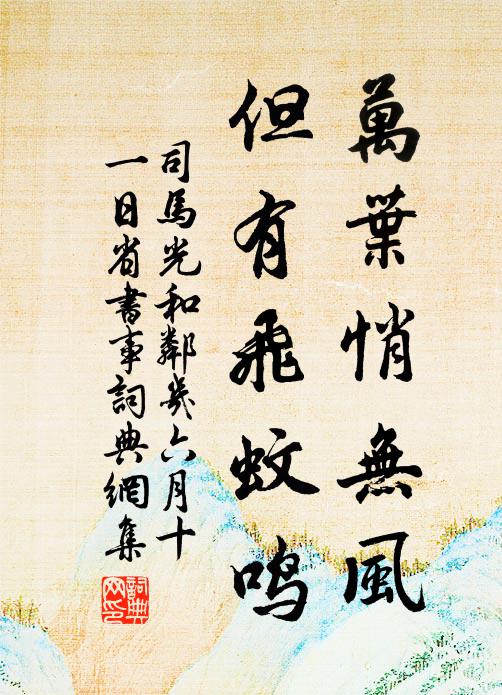 萬葉悄無風
但有飛蚊鳴
司馬光和鄰幾六月十
一日省書事詞典網集
詞典
网色